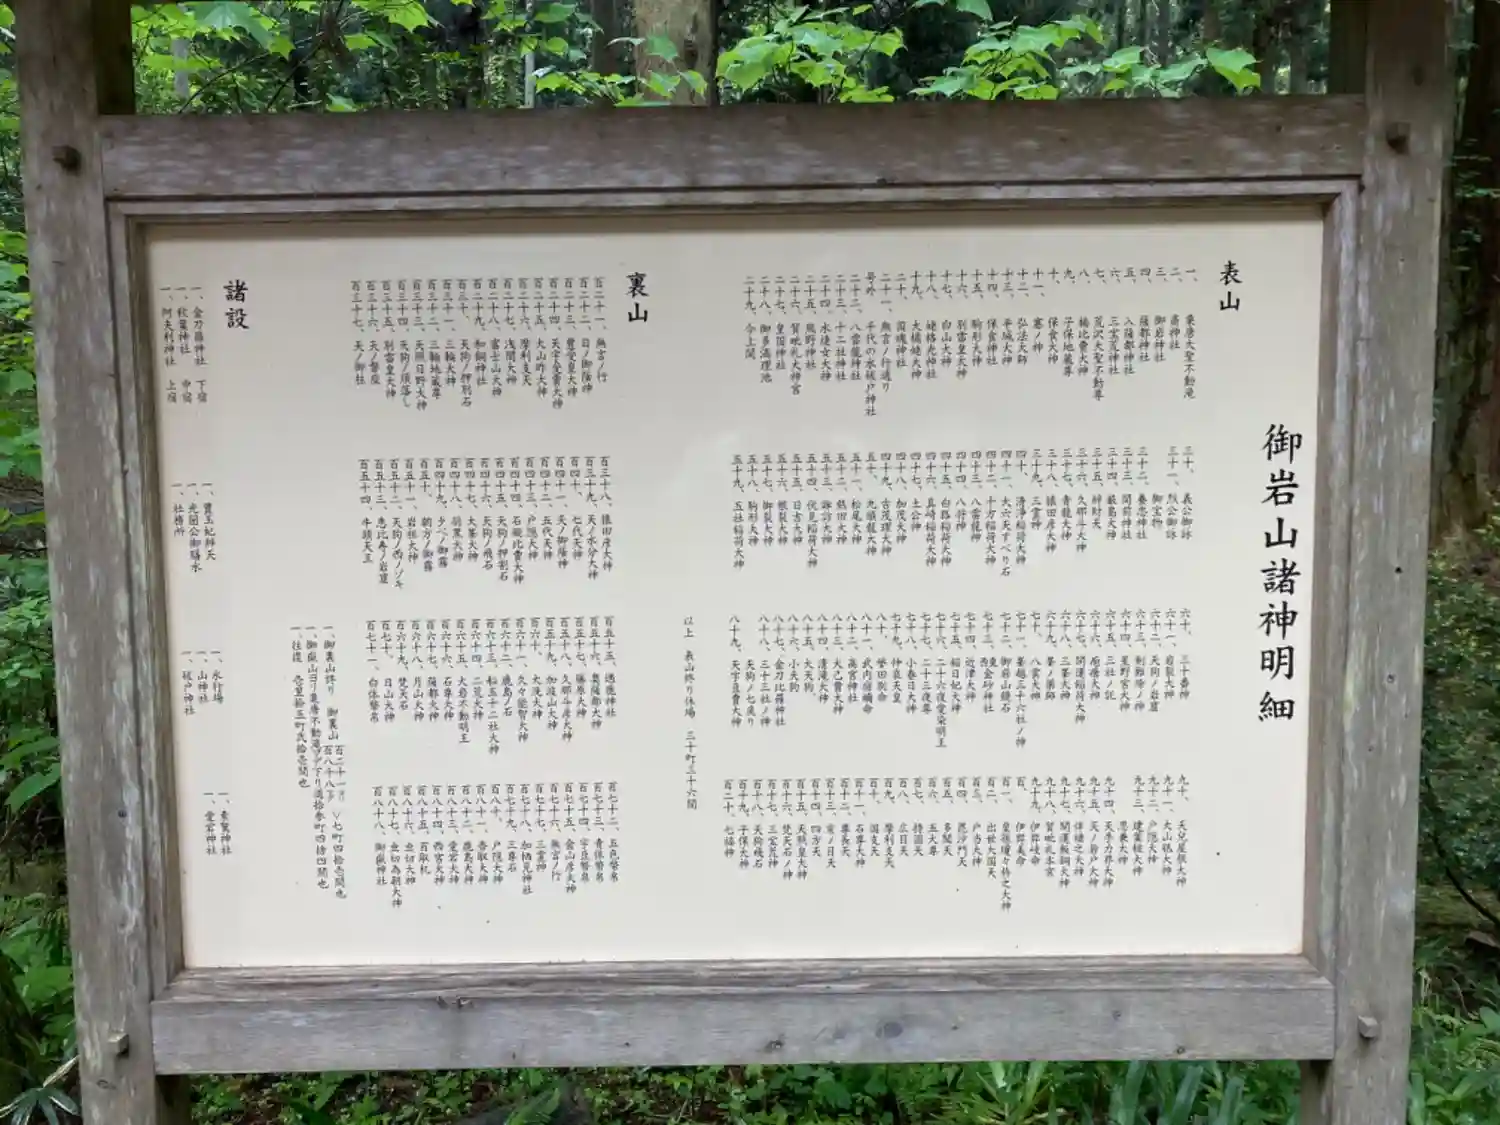 御岩山諸神明細
表山
二、斎神社
三、御岩神社
四、薩都神社
五、入薩都神社
六、三宝荒神社
七、荒沢大聖不動尊
九、子保地蔵尊
十、保食大神
十一、塞ノ神
十二、弘法大師
十三、平城大神
十四、保食神社
十五、駒形大神
十六、別雷皇大神
十七、白山大神
十八、姥格光神社
二十、国魂神社
二十一、無言ノ行通り
二十二、八雷龍神社
二十三、十二社神社
二十四、水速女大神
二十五、熊野神社
二十六、賀毗礼大神宮
二十七、皇国神社
二十九、今上関
三十、義公御詠
三十一、烈公御詠
御宝物
三十二、養忠神社
三十四、厳島大神
三十五、辨財天
三十六、久那斗大神
三十七、青龍大神
三十八、猿田彦大神
三十九、三霊神
四十、清浄稲荷大神
四十一、大六天すべり石
四十二、千方稲荷大神
四十三、八雷龍神
四十四、八衎神
四十五、白路稲荷大神
四十六、真崎稲荷大神
四十七、土公神
四十八、加茂大神
五十、九頭龍大神
五十一、松尾大神
五十二、熊田大神
五十三、諏訪大神
五十四、伏見稲荷大神
五十五、日吉大神
五十六、根裂大神
五十七、御裂大神
五十八、駒形大神
五十九、五社稲荷大神
六十、三十番神
六十一、岩裂大神
六十二、天狗ノ岩窟
六十三、剣難除ノ神
六十四、星野宮大神
六十五、三社ノ託
六十七、開運稲荷大神
六十八、三峯大神
六十九、峯ノ薬師
七十、八雲大神
七十一、峯越三十六社ノ神
七十二、御岩山鏡石
七十三、東西金砂神社
七十四、近津大神
七十五、稲日妃大神
七十六、二十六夜愛染明王
七十七、二十三夜尊
七十八、小春日大神
七十九、仲哀天皇
八十、誉田別命
八十一、武内宿禰命
八十二、高宮神社
八十三、大己貴大神
八十四、清滝大神
八十五、大天狗
八十六、小天狗
八十七、金刀比羅神社
八十八、三十三社ノ神
天狗ノ七戻り
八十九、天宇豆賣大神
九十、天兒屋根大神
九十一、大山祇大神
九十二、戸隠大神
九十三、建葉槌大神
思兼大神
九十四、天手力男大神
九十五、天ノ岩戸大神
九十七、開運飯綱大神
九十八、賀毗礼本宮
九十九、伊邪岐命
百、伊邪美命
百一、皇孫瓊々杵之大神
百二、出世大国天
百三、戸当大神
百四、毘沙門天
百五、多聞天
百六、五大尊
百七、持国天
百八、広目天
百九、摩利支天
百十、国支天
百十一、石尊大神
百十二、尊長天
百十三、東ノ日天
百十四、四方天
百十五、天照皇大神
百十六、梵天石ノ神
百十七、三宝荒神
百十八、天狗礒石
百十九、子保大神
百二十、七福神
以上 表山終り休場 三十町三十六間
裏山
百二十一、無言ノ行
百二十二、日ノ御蔭神
百二十三、豊受皇大神
百二十四、天宇受賣大神
百二十五、大山咋大神
百二十六、摩利支天
百二十七、浅間大神
百二十八、富士山大神
百二十九、和銅神社
百三十、天狗ノ押別石
百三十一、三輪大神
百三十二、三輪地蔵尊
百三十三、天照日野大神
百三十四、天狗ノ頭落し
百三十五、別雷皇大神
百三十六、天ノ磐座
百三十七、天ノ御柱
百三十八、猿田彦大神
百三十九、天ノ水分大神
百四十、七代天神
百四十一、天ノ御蔭神
百四十二、五代天神
百四十三、戸隠大神
百四十四、石磤比賣大神
百四十五、天狗ノ押割石
百四十六、天狗ノ飛石
百四十七、大峯大神
百四十八、羽黒大神
百四十九、夕べノ御霧
百五十、朝方ノ御霧
百五十一、岩祖大神
百五十二、天狗ノ西ノゾキ
百五十三、恵比寿ノ岩窟
百五十四、牛頭天王
百五十五、透鹿神社
百五十六、奥薩都大神
百五十七、藤原大神
百五十八、久那斗彦大神
百五十九、加波山大神
百六十、大洗大神
百六十一、久々能智大神
百六十二、鹿島ノ石
百六十三、松五十二社大神
百六十四、二荒大神
百六十五、大岩不動明王
百六十六、石尊大神
百六十七、薩都大神
百六十八、月山大神
百六十九、梵天石
百七十、日山大神
百七十一、白体幣帛
百七十二、五色幣帛
百七十三、青体幣帛
百七十四、宇豆幣帛
百七十五、金山彦大神
百七十六、無言ノ行
百七十七、三霊神
百七十八、加栖見神社
百七十九、三尊石
百八十、戸隠大神
百八十一、香取大神
百八十二、鹿島大神
百八十三、愛宕大神
百八十四、西宮大神
百八十五、百取札
百八十六、虫切大神
百八十七、虫切為朝大神
百八十八、御嶽神社
一、御裏山終り 御裏山 百二十一ヨリ 百八十八マデ 〉七町四拾壱間也
一、往復 壱里拾五町弐拾壱間也
諸設
一、金刀羅神社 下宿
一、秋葉神社 中宿
一、阿夫利神社 上宿
一、寶玉妃辨天
一、光圀公御膳水
一、社務所
一、水行場
一、山神社
一、祓戸神社
一、素鵞神社
一、愛宕神社